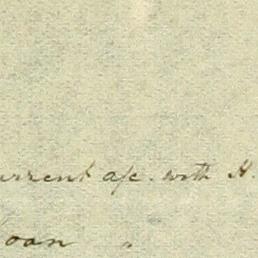 urrent a/c. with H.
Loan "